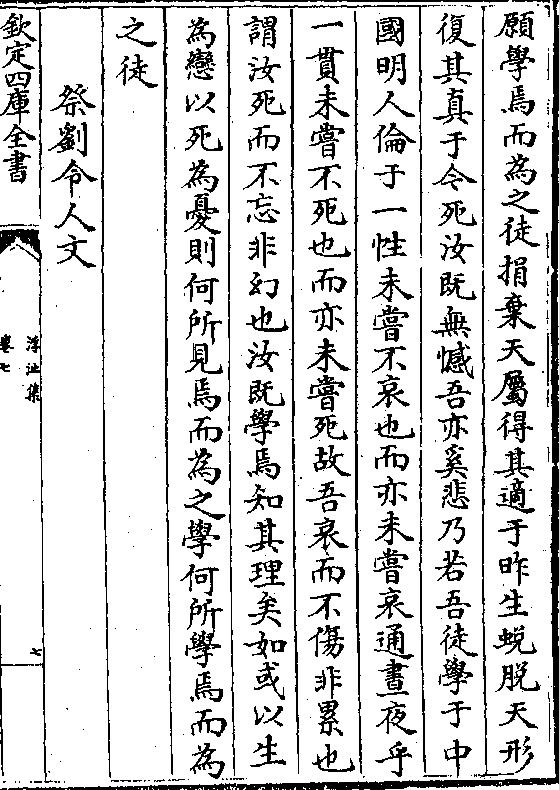 願學焉而為之徒捐棄天屬得其適于昨生蛻脱天形
復其真于今死汝既無憾吾亦奚悲乃若吾徒學于中
國明人倫于一性未嘗不哀也而亦未嘗哀通晝夜乎
一貫未嘗不死也而亦未嘗死故吾哀而不傷非累也
謂汝死而不忘非幻也汝既學焉知其理矣如或以生
為戀以死為憂則何所見焉而為之學何所學焉而為
之徒
祭劉令人文
欽定四庫全書
浮沚集
卷七
七